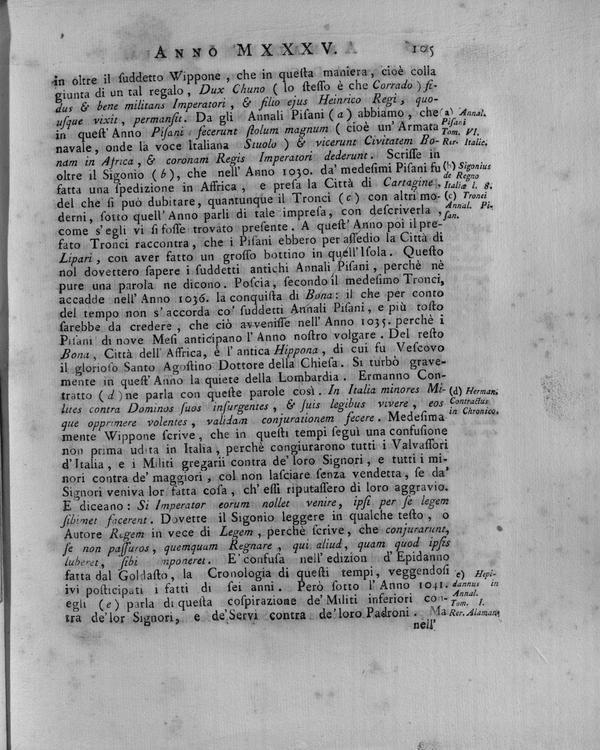 ANNO MXXXV. 105
in oltre il ſuddetto Wippone, che in queſta maniera, cioè colla
giunta di un tal regalo, Dux Chuno (lo ſteſſo è che Corrado) fi-
dus & bene militans Imperatori, & filio ejus Heinrico Regi, quo-
uſque vixit, permanſit. Da gli Annali Piſani (a) abbiamo, che
in queſt' Anno Piſani fecerunt ſtolum magnum (cioè un' Armata
navale, onde la voce Italiana Stuolo) & vicerunt Civitatem Bo-
nam in Africa, & coronam Regis Imperatori dederunt. Scriſſe in
oltre il Sigonio (b), che nell' Anno 1030. da' medeſimi Piſani fu
fatta una ſpedizione in Affrica, e preſa la Città di Cartagine,
del che ſi può dubitare, quantunque il Tronci (c) con altri mo-
derni, ſotto quell' Anno parli di tale impreſa, con deſcriverla,
come s' egli vi ſi foſſe trovato preſente. A queſt' Anno poi il pre-
fato Tronci racconta, che i Piſani ebbero per aſſedio la Città di
Lipari, con aver fatto un groſſo bottino in quell' Iſola. Queſto
nol dovettero ſapere i ſuddetti antichi Annali Piſani, perchè nè
pure una parola ne dicono. Poſcia, ſecondo il medeſimo Tronci,
accadde nell' Anno 1036. la conquiſta di Bona: il che per conto
del tempo non s' accorda co' ſuddetti Annali Piſani, e più toſto
ſarebbe da credere, che ciò avveniſſe nell' Anno 1035. perchè i
Piſani di nove Meſi anticipano l' Anno noſtro volgare. Del reſto
Bona, Città dell' Affrica, è l' antica Hippona, di cui fu Veſcovo
il glorioſo Santo Agoſtino Dottore della Chieſa. Si turbò grave-
mente in queſt' Anno la quiete della Lombardia. Ermanno Con-
tratto (d) ne parla con queſte parole così. In Italia minores Mi-
lites contra Dominos ſuos inſurgentes, & ſuis legibus vivere, eos
que opprimere volentes, validam conjurationem fecere. Medeſima
mente Wippone ſcrive, che in queſti tempi ſeguì una confuſione
non prima udita in Italia, perchè congiurarono tutti i Valvaſſori
d' Italia, e i Militi gregarii contra de' loro Signori, e tutti i mi-
nori contra de' maggiori, col non laſciare ſenza vendetta, ſe da'
Signori veniva lor fatta coſa, ch' eſſi riputaſſero di loro aggravio.
E diceano: Si Imperator eorum nollet venire, ipſi per ſe legem
ſibimet facerent. Dovette il Sigonio leggere in qualche teſto, o
Autore Regem in vece di Legem, perchè ſcrive, che conjurarunt,
ſe non paſſuros, quemquam Regnare, qui aliud, quam quod ipſis
luberet, ſibi imponeret. E' confuſa nell' edizion d' Epidanno
fatta dal Goldaſto, la Cronologia di queſti tempi, veggendoſi
ivi poſticipati i fatti di ſei anni. Però ſotto l' Anno 1041.
egli (e) parla di queſta coſpirazione de' Militi inferiori con-
tra de' lor Signori, e de' Servi contra de' loro Padroni. Ma
nell'
(a) Annal.
Piſani
Tom. VI.
Rer. Italic.
(b) Sigonius
de Regno
Italiæ l. 8.
(c) Tronci
Annal. Pi-
ſan.
(d) Herman.
Contractus
in Chronico.
e) Hepi-
dannus in
Annal.
Tom. I.
Rer. Alaman.